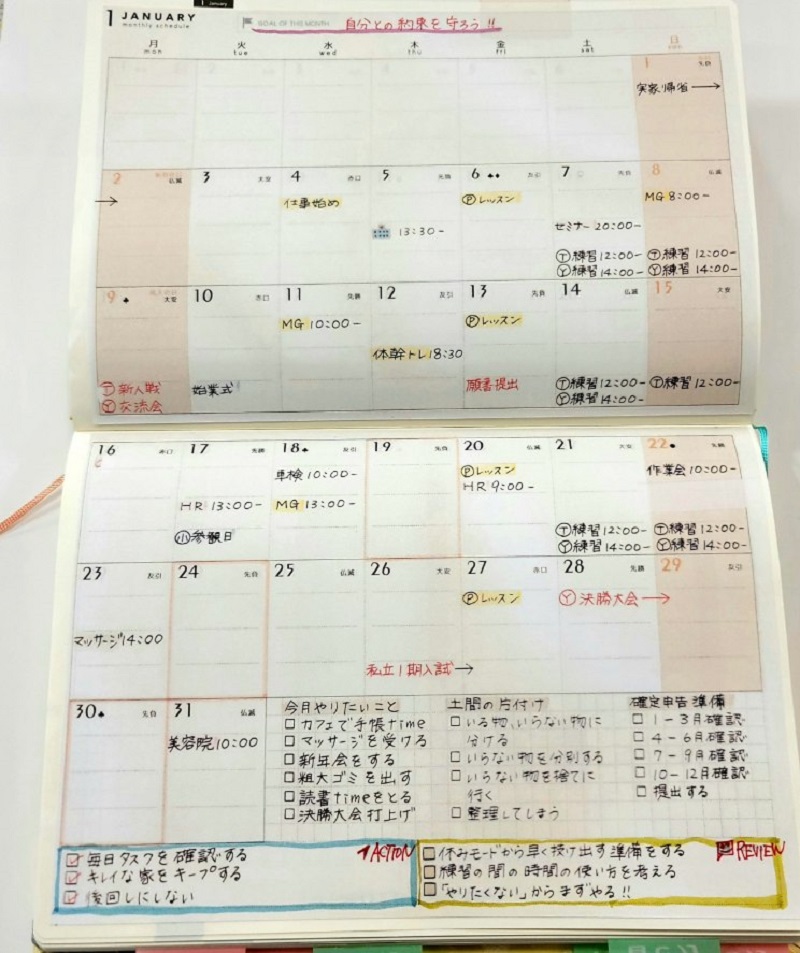 1 January
1 JANUARY
monthly schedule
GOAL OF THE MONTH 自分との約束を守ろう!!
月 火 水 木 金 土 日
mon tue wed thu fri sat sun
1 先負
実家帰省→
2 仏滅
→
3 大安
4 赤口
仕事始め
5 先勝
13:30-
6 友引
Ⓟレッスン
7 先負
セミナー 20:00-
Ⓣ練習 12:00-
Ⓨ練習 14:00-
8 仏滅
MG 8:00-
Ⓣ練習 12:00-
Ⓨ練習 14:00-
9 大安
Ⓣ新人戦
Ⓨ交流会
10 赤口
始業式
11 先勝
MG 10:00-
12 友引
体幹トレ 18:30
13 先負
Ⓟレッスン
願書提出
14 仏滅
Ⓣ練習 12:00-
Ⓨ練習 14:00-
15 大安
Ⓣ練習 12:00-
16 赤口
17 先勝
HR 13:00-
㊙参観日
18 友引
車検 10:00-
MG 13:00-
19 先負
20 仏滅
Ⓟレッスン
HR 9:00-
21 大安
Ⓣ練習 12:00-
Ⓨ練習 14:00-
22 先勝
作業会 10:00-
Ⓣ練習 12:00-
Ⓨ練習 14:00-
23 友引
マッサージ 14:00
24 先負
25 仏滅
26 大安
私立1期入試→
27 赤口
Ⓟレッスン
28 先勝
Ⓨ決勝大会→
29 友引
30 先負
31 仏滅
美容院 10:00
今月やりたいこと
□カフェで手帳time
□マッサージを受ける
□新年会をする
□粗大ゴミを出す
□読書timeをとる
□決勝大会打上げ
土間の片付け
□いる物、いらない物に
分ける
□いらない物を分別する
□いらない物を捨てに
行く
□整理してしまう
確定申告準備
□1-3月確認
□4-6月確認
□7-9月確認
□10-12月確認
□提出する
ACTION
☑毎日タスクを確認する
☑キレイな家をキープする
☑後回しにしない
REVIEW
□休みモードから早く抜け出す準備をする
□練習の間の時間の使い方を考える
□「やりたくない」からまずやる!!